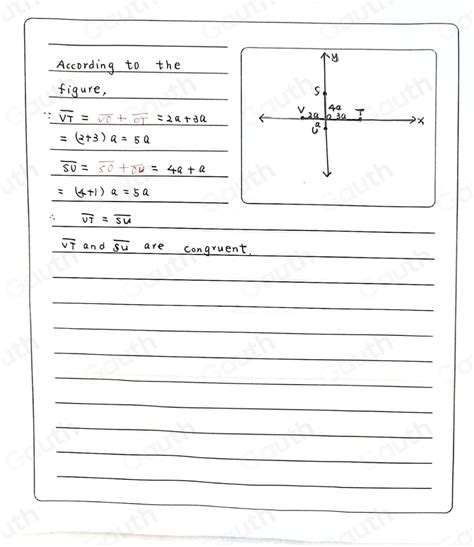 According to the
figure,
∵ V̅T̅ = V̅O̅ + O̅T̅ = 2a+3a
= (2+3) a = 5a
S̅U̅ = S̅O̅ + O̅U̅ = 4a + a
= (4+1) a = 5a
∴ V̅T̅ = S̅U̅
V̅T̅ and S̅U̅ are congruent.
y
S
4a
V 2a 0 3a T
x
a
U
Gauth